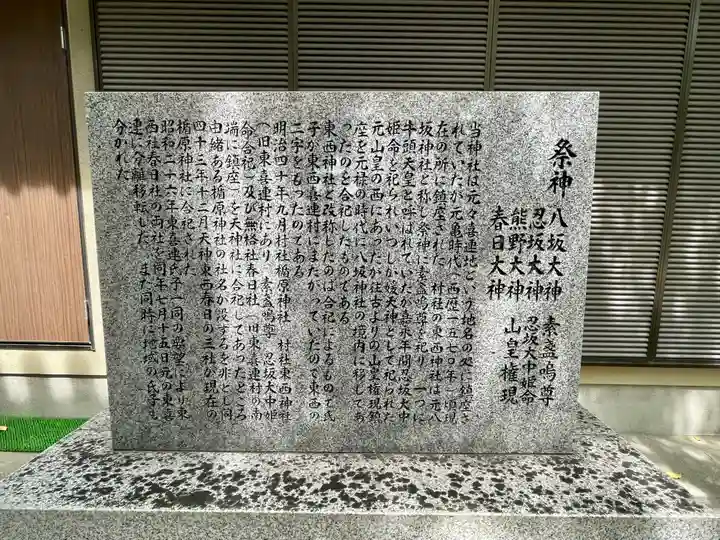 祭神
八坂大神 素盞嗚尊
忍坂大神 忍坂大中姫命
熊野大神 山皇権現
春日大神
当神社は元々喜連地という地名の処に鎮座さ
れていたが元亀時代(西歴一五七〇年)頃現
在の所に鎮座された 村社の東西神社は元八
坂神社と称し祭神に素盞嗚尊を祀り一つに
牛頭天皇と呼ばれていたが嘉暦年間忍坂大中
姫命を祀られいつしか妓天神として祀られた
元山皇の西にあったが往古よりの山皇権現鎮
座を元禄の時代に八坂神社の境内に移してあ
ったのを合祀したものである
東西神社と改称したのは合祀によるもので氏
子が東西喜連村にまたがっていたので東西の
二字をもつたのである
明治四十年九月村社楯原神社 村社東西神社
(旧東喜連村にあり 素盞嗚尊 忍坂大中姫
命合祀)及び無格社春日社(旧東喜連村の南
端に鎮座)を天神社に合祀してあったところ
由緒ある楯原神社の社名が没するを非とし同
四十三年十二月天神東西春日の三社が現在の
楯原神社に合祀された
昭和二十六年東喜連氏子一同の懇望により東
西社春日社の両社を同年七月十五日元の東喜
連に分離移転した また同時に地域の氏子も
分かれた